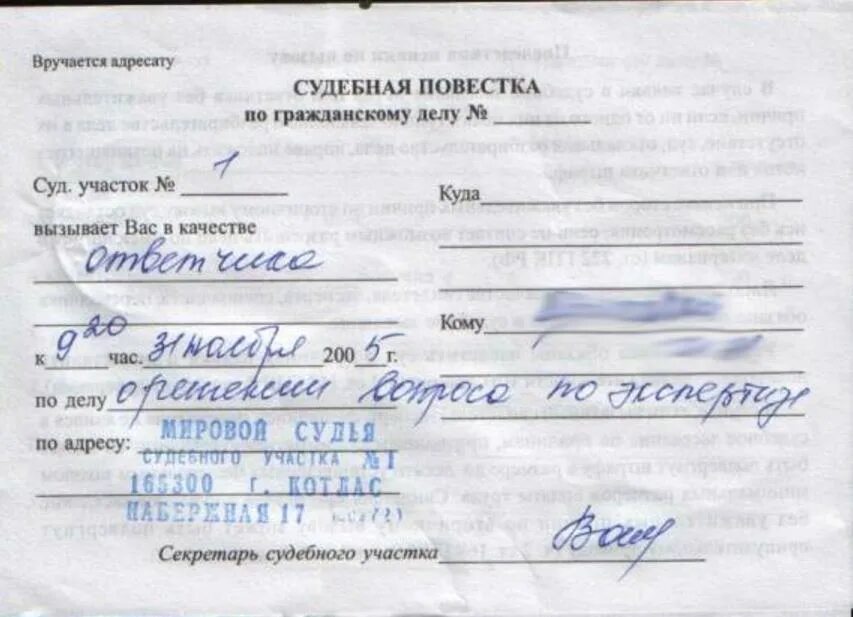 Вручается адресату
СУДЕБНАЯ ПОВЕСТКА
по гражданскому делу №
Суд. участок № 1
Куда
вызывает Вас в качестве
ответчика
Кому
к 9 20 час. 31 ноября 2005 г.
по делу о решении вопроса по экспертизе
по адресу: МИРОВОЙ СУДЬЯ
СУДЕБНОГО УЧАСТКА №1
165300 г. КОТЛАС
НАБЕРЖНАЯ 17
Секретарь судебного участка